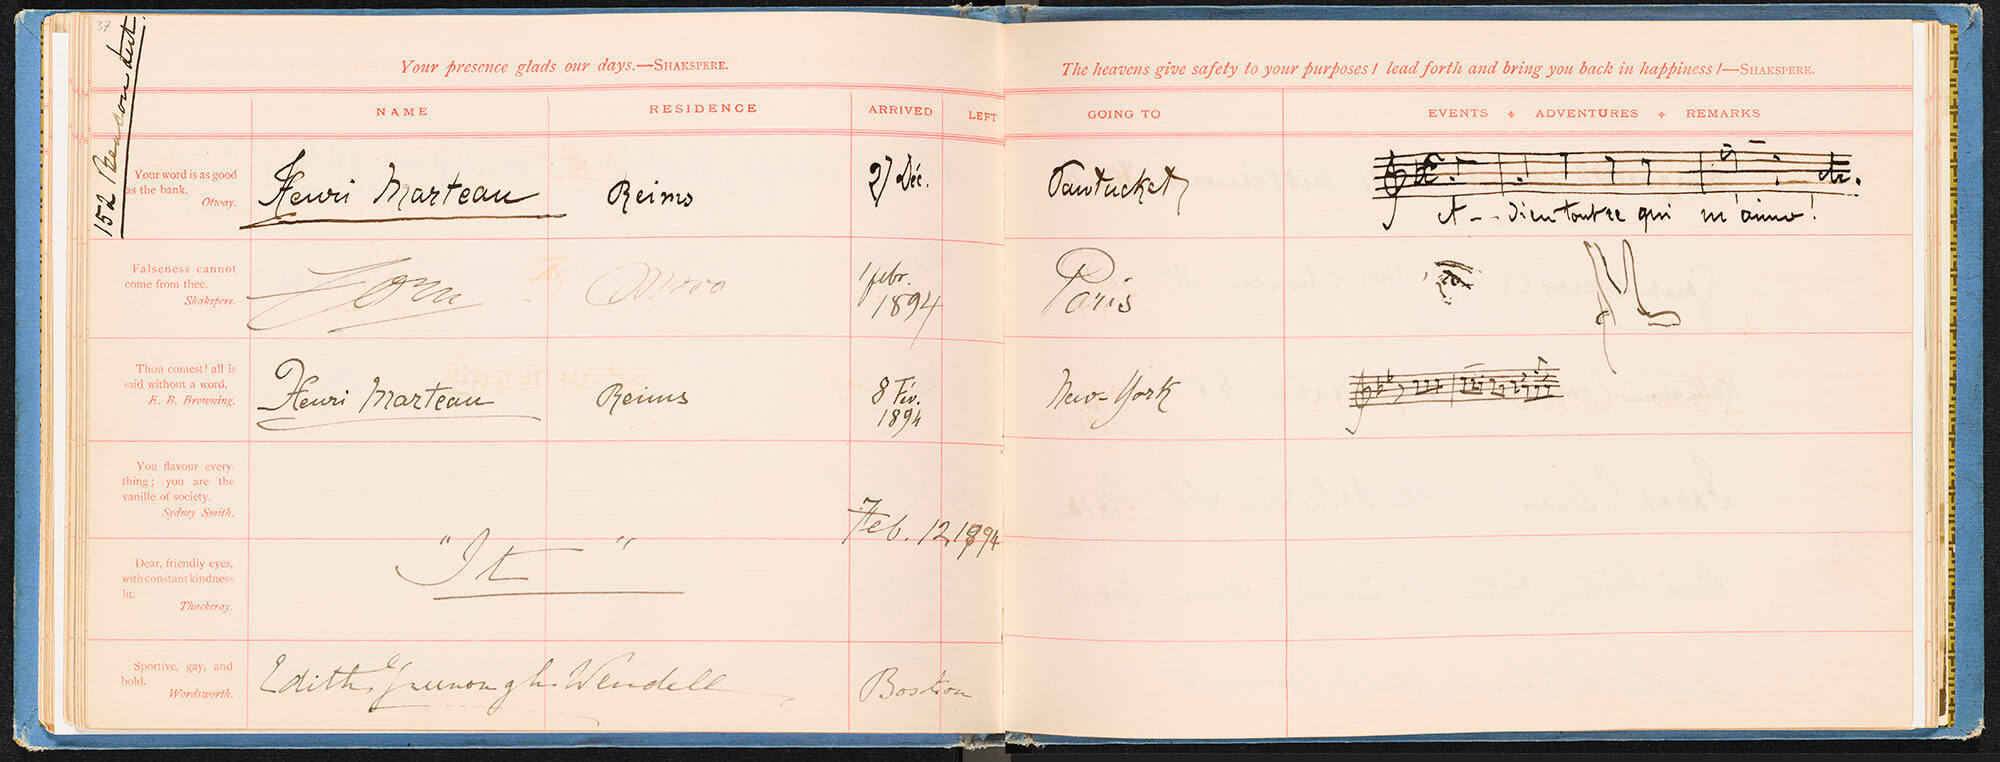 37
152 Beacon Street.
Your presence glads our days.—SHAKSPERE.
The heavens give safety to your purposes! lead forth and bring you back in happiness!—SHAKSPERE.
NAME RESIDENCE ARRIVED LEFT GOING TO EVENTS ADVENTURES REMARKS
Your word is as good
as the bank.
Otway.
Henri Marteau Reims 27 Déc. Pawtucket
A--dieu tout ce qui m'aime!
Falseness cannot
come from thee.
Shakspere.
Zorn Mora 1 febr.
1894
Paris
Thou comest! all is
said without a word.
E. B. Browning.
Henri Marteau Reims 8 Fév.
1894
New-York
You flavour every-
thing; you are the
vanille of society.
Sydney Smith.
Feb. 12, 1894
Dear, friendly eyes,
with constant kindness
lit.
Thackeray.
"It"
Sportive, gay, and
bold.
Wordsworth.
Edith Greenough Wendell Boston